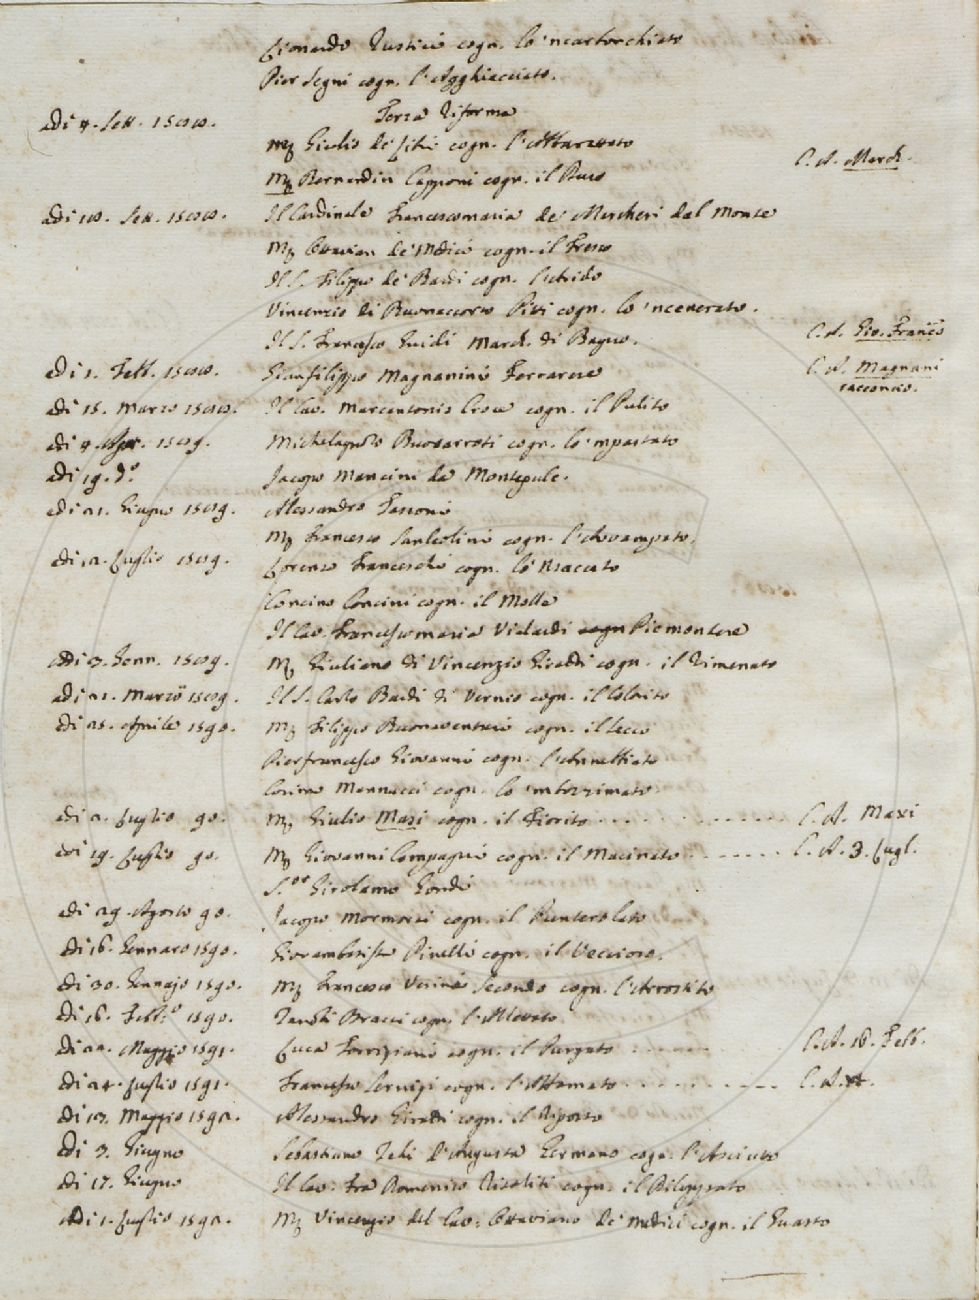 Lionardo Rustici cogn. lo 'ncartocchiato
Pier Segni cogn. l'Agghiacciato.
Terza Riforma
adi 4. Sett. 1588.
Mʒ Giulio de Libri cogn. l'Abbarrato
Mʒ Bernardin Capponi cogn. il C. A. March.
adi 18. Sett. 1588. Il Cardinale Francescomaria de' Marchesi dal Monte
Mʒ Ottavian de' Medici cogn. il Fresco
Il S. Filippo de' Bardi cogn. l'
Vincenzio di Buonaccorso Pitti cogn. lo 'ncenerato.
Il S. Francesco Guidi March. di Bagno. C. A. Gio. Franc.º
adi 1. Febb. 1588. Gianfilippo Magnanini Ferrarese C. A. Magnani
racconcio.
adi 15. Marzo 1588. Il Cav. Marcantonio cogn. il Pulito
adi 4. Apr. 1589. Michelagnolo Buonarroti cogn. lo 'mpastato
adi 19. d.º Jacopo Mancini da Montepulc.
adi 21. Giugno 1589. Alessandro Tassoni
Mʒ Francesco Sanleolini cogn. l'Avvampato.
adi 12. Luglio 1589. Lorenzo Franceschi cogn. lo 'nsaccato
Concino Concini cogn. il
Il Cav. Francescomaria Vialardi cogn Piemontese
adi 3. Genn. 1589. Mʒ Giuliano di Vincenzio Giraldi cogn. il Rimenato
adi 21. Marzo 1589. Il S. Carlo Bardi di Vernio cogn. il Colorito
adi 25. Aprile 1590. Mʒ Filippo Buonaventuri cogn. il Secco
Pierfrancesco Giovanni cogn. l'Annebbiato
Cosimo Mannucci cogn. lo 'mbozzimato
adi 2. Luglio 90. Mʒ Giulio Masi cogn. il Fiorito . . . . . . . . . C. A. Maxi
adi 19. Luglio 90. Mʒ Giovanni Compagni cogn. il Macinato . . . . . . . C. A. 3. Lugl.
S.ºʳ Girolamo Gondi
adi 29. Agosto 90. Jacopo Mormorai cogn. il Punterolato
adi 16. Gennaro 1590. Giovambatista Pinelli cogn. il Veccioso.
adi 30. Gennajo 1590. Mʒ Francesco Verini Secondo cogn. l'Arrostito
adi 16. Febb.º 1590. Zanobi Bracci cogn. l'Alloato.
adi 22. Maggio 1591. Luca Torrigiani cogn. il Purgato . . . . . . C. A. 16. Febb.
adi 24. Luglio 1591. Francesco Sernigi cogn. l'Affamato . . . . . . . . . C. A.
adi 13. Maggio 1592. Alessandro Giraldi cogn. il Riposto
adi 3. Giugno Sebastiano Zehi d'Augusta Germano cogn. l'Asciutto
adi 17. Giugno Il Cav. Fra Domenico Ricoliti cogn. il
adi 1. Luglio 1592. Mʒ Vincenzio del Cav. Ottaviano de' Medici cogn. il Guasto